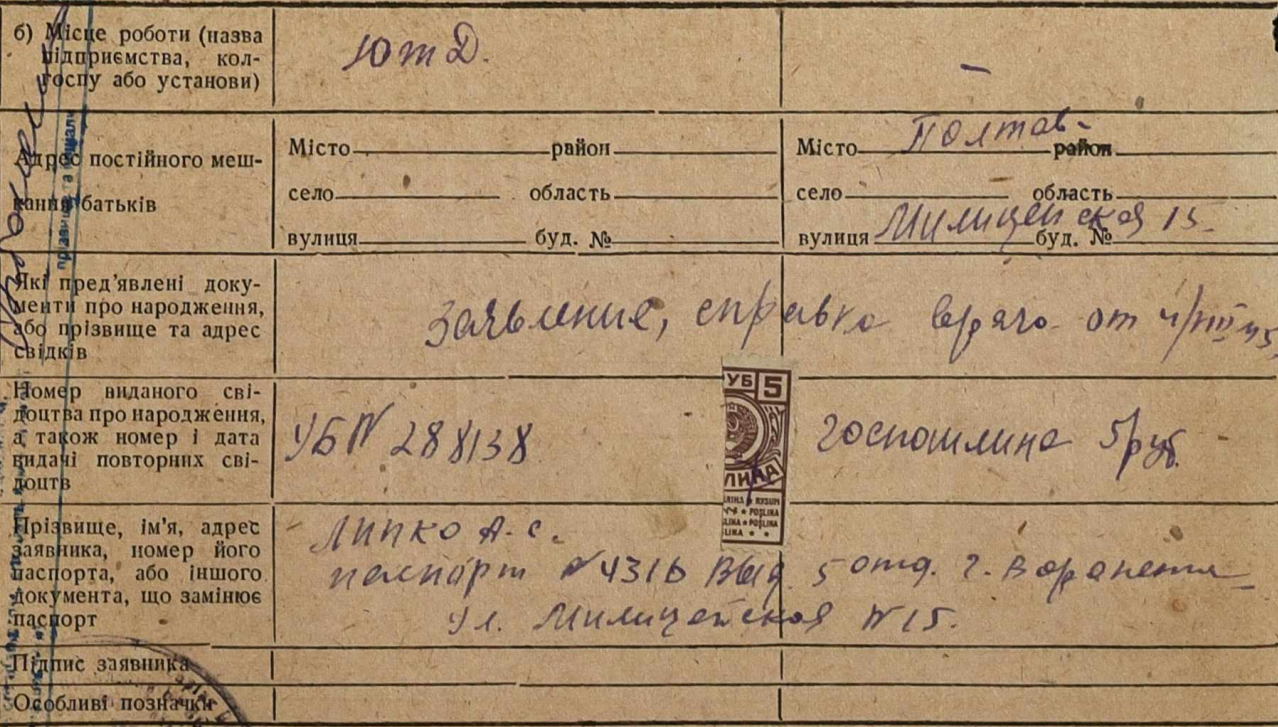 б) Місце роботи (назва
підприємства, кол-
госпу або установи)
ЮжД.
–
Адрес постійного меш-
кання батьків
Місто район
село область
вулиця буд. №
Місто Полтав- район
село область
вулиця Милицейская 15 буд. №
Які пред'явлені доку-
менти про народження,
або прізвище та адрес
свідків
заявление, справка врача от
Номер виданого сві-
доцтва про народження,
а також номер і дата
видачі повторних сві-
доцтв
УБ N 288138
УБ 5
госпошлина 5 руб.
Прізвище, ім'я, адрес
заявника, номер його
паспорта, або іншого
документа, що замінює
паспорт
Липко А. С.
паспорт № 4316 выд. 5 отд. г.
ул. Милицейская N 15.
Підпис заявника
Особливі позначки
прізвище та ініціали